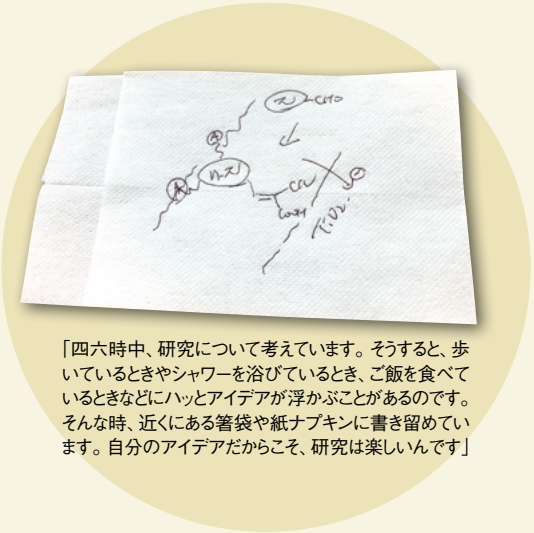 π-CHO
A
n-π
CN
COOH
TiO2.
「四六時中、研究について考えています。そうすると、歩
いているときやシャワーを浴びているとき、ご飯を食べて
いるときなどにハッとアイデアが浮かぶことがあるのです。
そんな時、近くにある箸袋や紙ナプキンに書き留めてい
ます。自分のアイデアだからこそ、研究は楽しいんです」